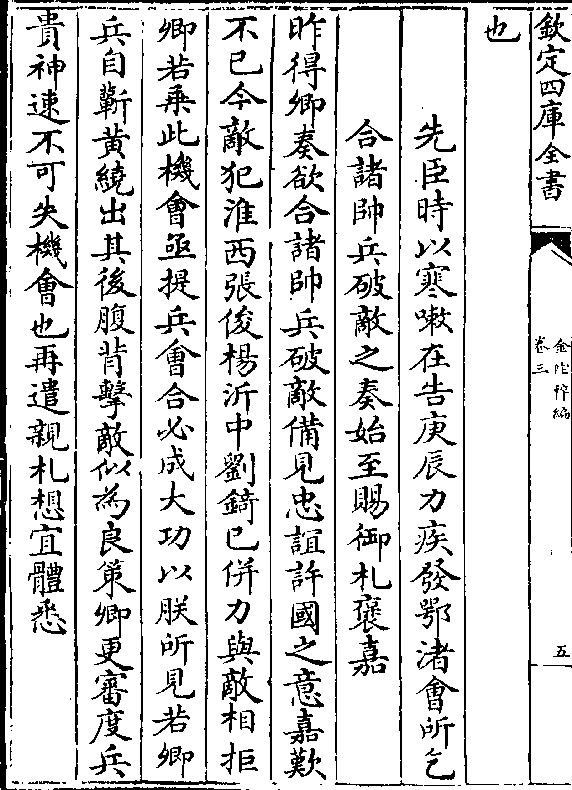 欽定四庫全書
金陀稡編
卷三
五
也
先臣時以寒嗽在告庚辰力疾發鄂渚會所乞
合諸帥兵破敵之奏始至賜御札褒嘉
昨得卿奏欲合諸帥兵破敵備見忠誼許國之意嘉歎
不已今敵犯淮西張俊楊沂中劉錡已併力與敵相拒
卿若乗此機會亟提兵會合必成大功以朕所見若卿
兵自蘄黄繞出其後腹背擊敵似為良策卿更審度兵
貴神速不可失機會也再遣親札想宜體悉